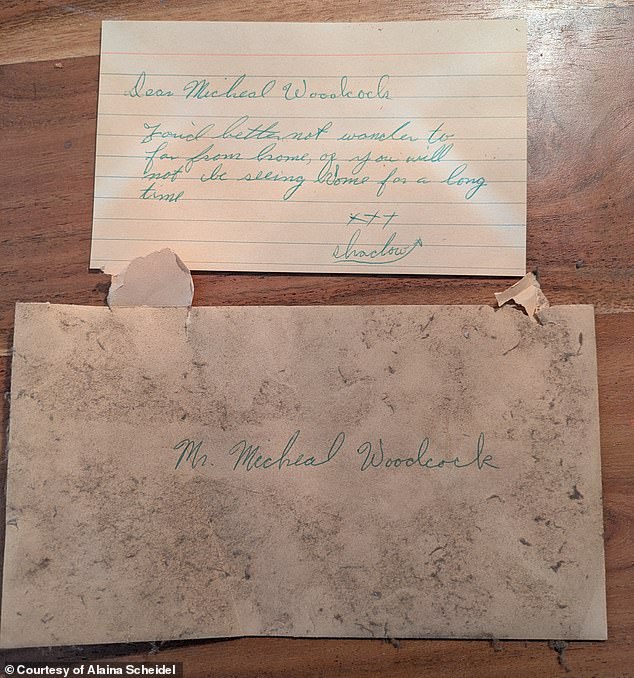 Dear Micheal Woodcock
You'd better not wander to
far from home, or you will
not be seeing home for a long
time
xxx
shadow
Mr. Micheal Woodcock
©Courtesy of Alaina Scheidel